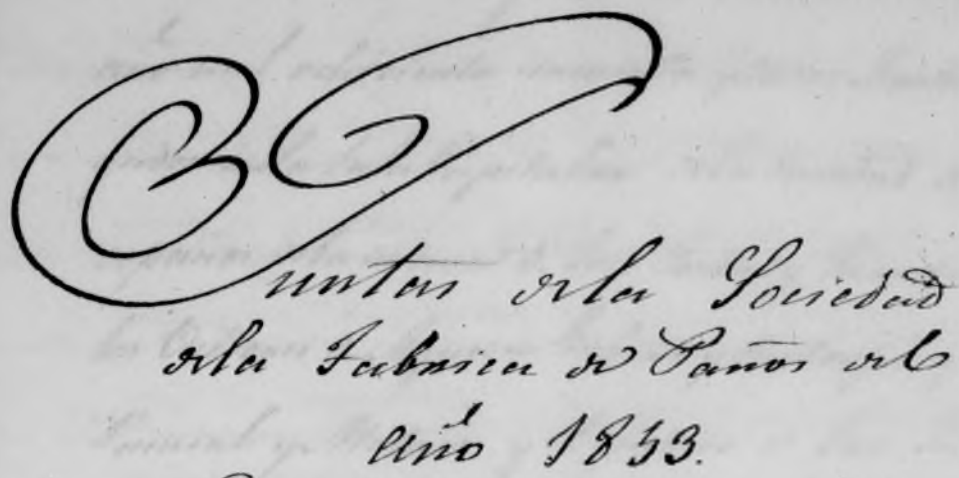 Juntas dela Sociedad
dela Fabrica de Paños del
año 1833.